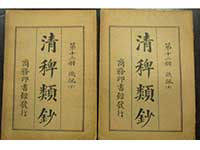 第十二册
清稗類鈔
商務印書館發行
第十二册
清稗類鈔
商務印書館發行